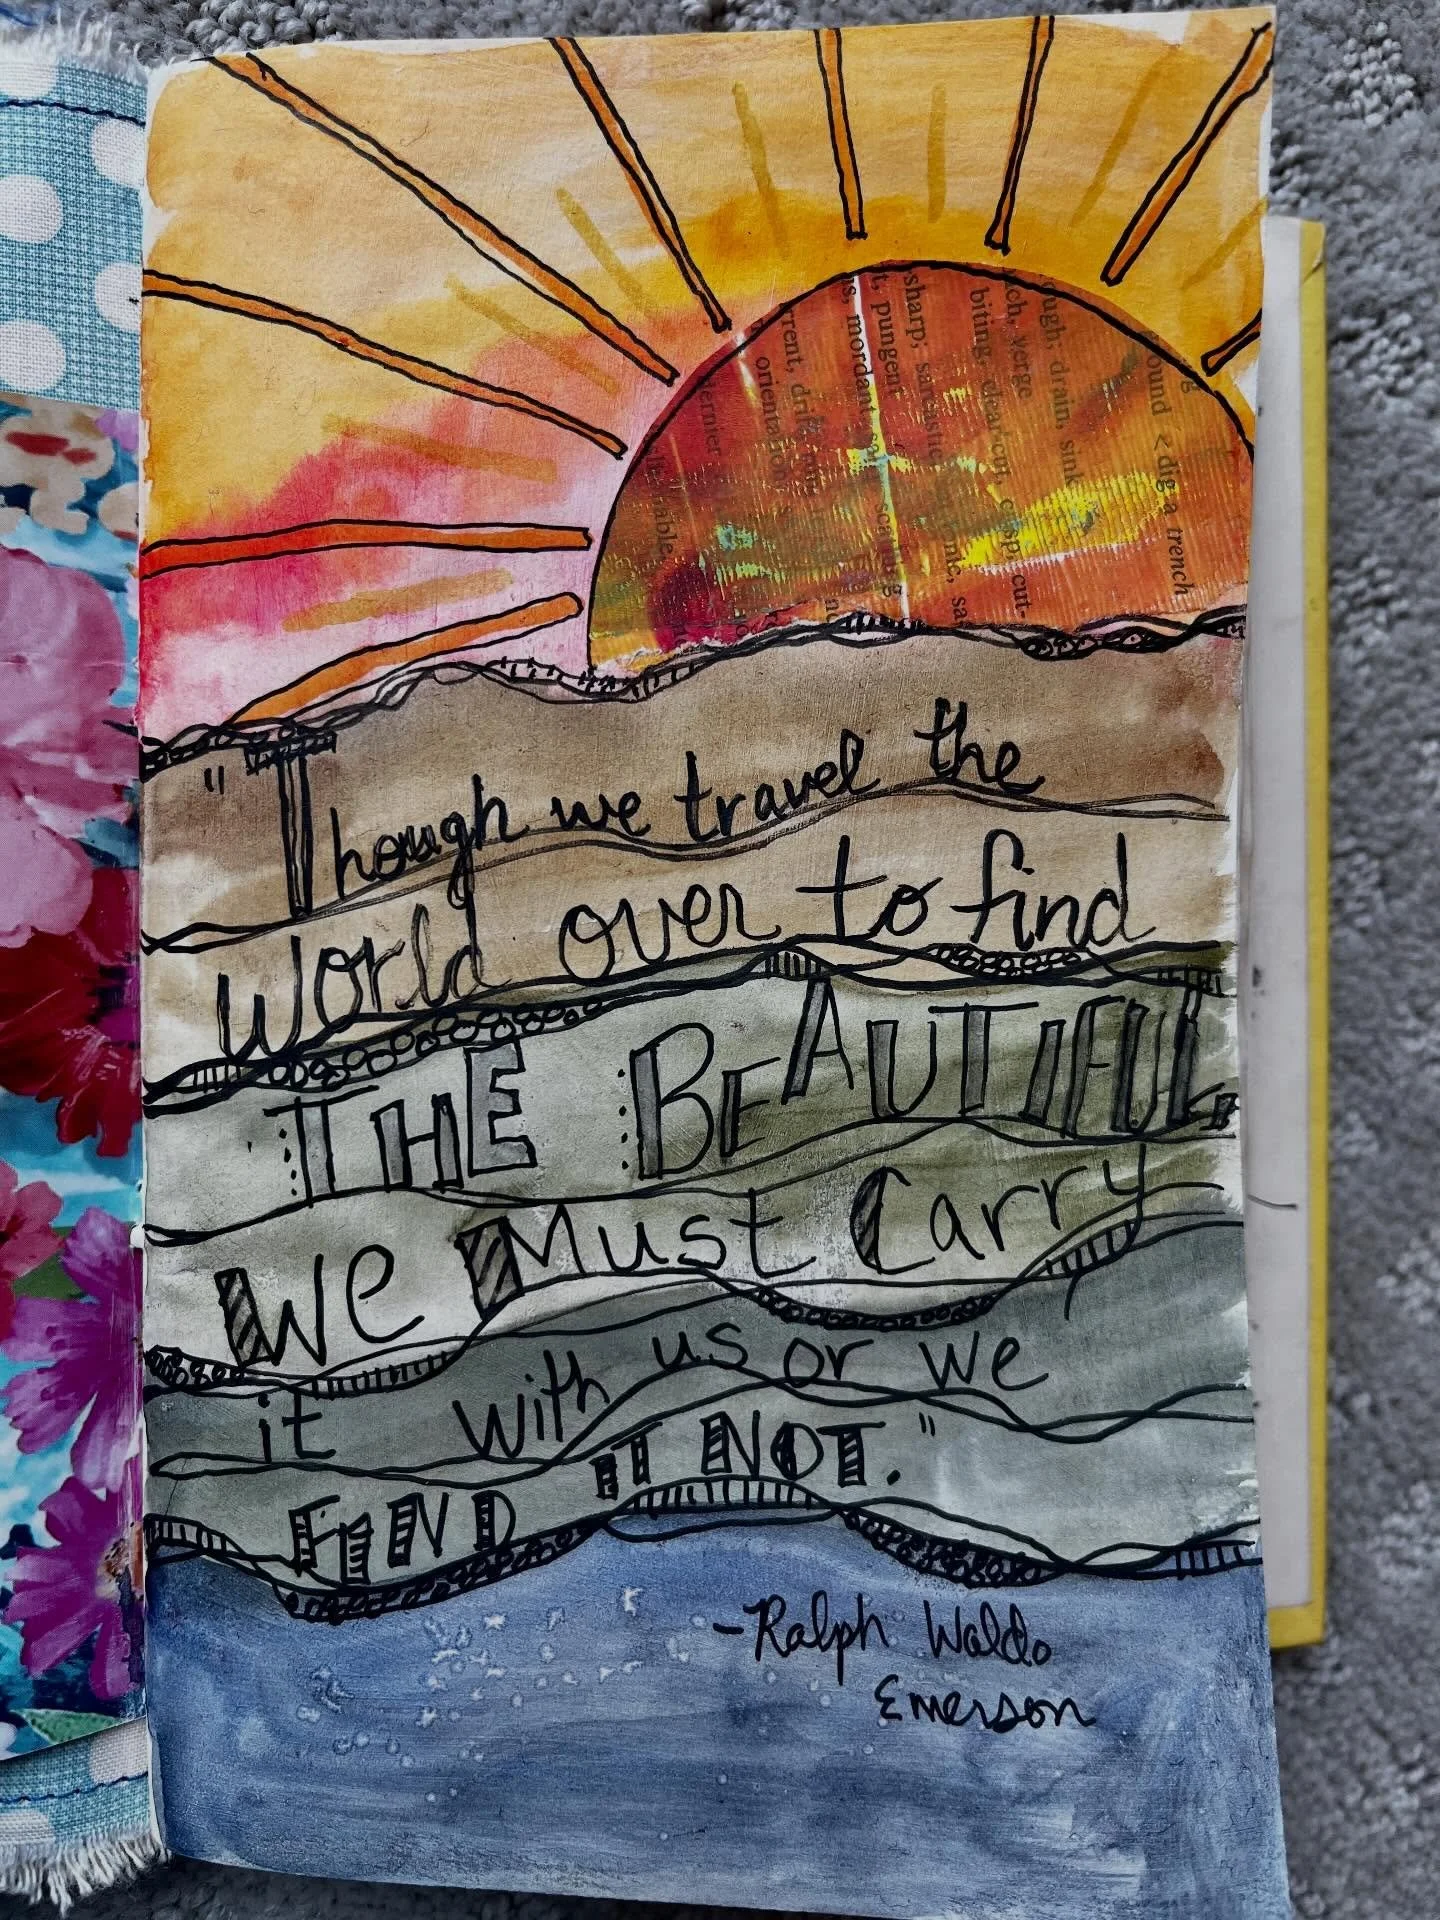 "Though we travel the
World over to find
THE BEAUTIFUL,
We Must Carry
it with us or we
FIND IT NOT."
-Ralph Waldo
Emerson
sharp; sarcastic
t, pungent
s, mordant
biting, clearcut, crisp, cut-
verge
ough; drain, sink
ground < dig a trench
rrent, drift
orientation